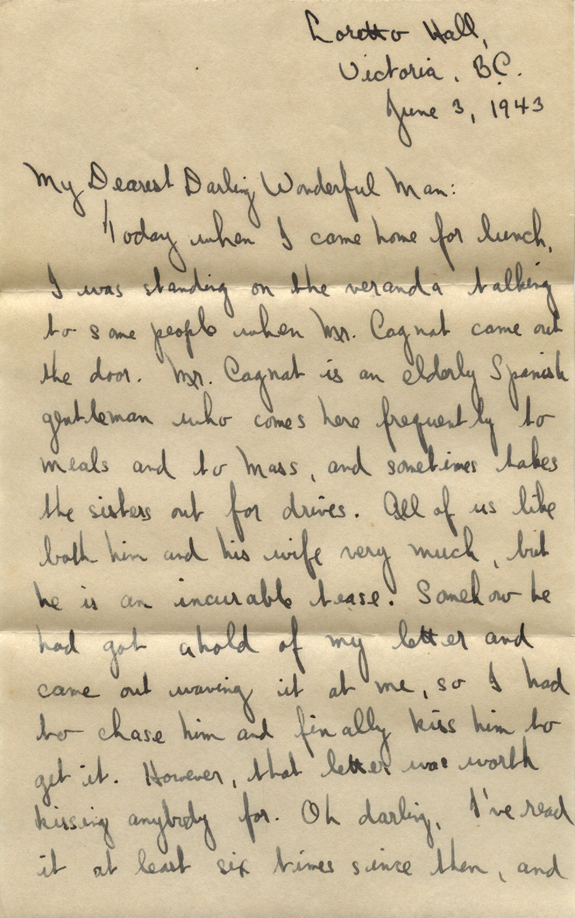 Loretto Hall,
Victoria, BC.
June 3, 1943
My Dearest Darling Wonderful Man:
Today when I came home for lunch,
I was standing on the veranda talking
to some people when Mr. Cagnat came out
the door. Mr. Cagnat is an elderly Spanish
gentleman who comes here frequently to
meals and to Mass, and sometimes takes
the sisters out for drives. All of us like
both him and his wife very much, but
he is an incurable tease. Somehow he
had got ahold of my letter and
came out waving it at me, so I had
to chase him and finally kiss him to
get it. However, that letter was worth
kissing anybody for. Oh darling, I've read
it at least six times since then, and